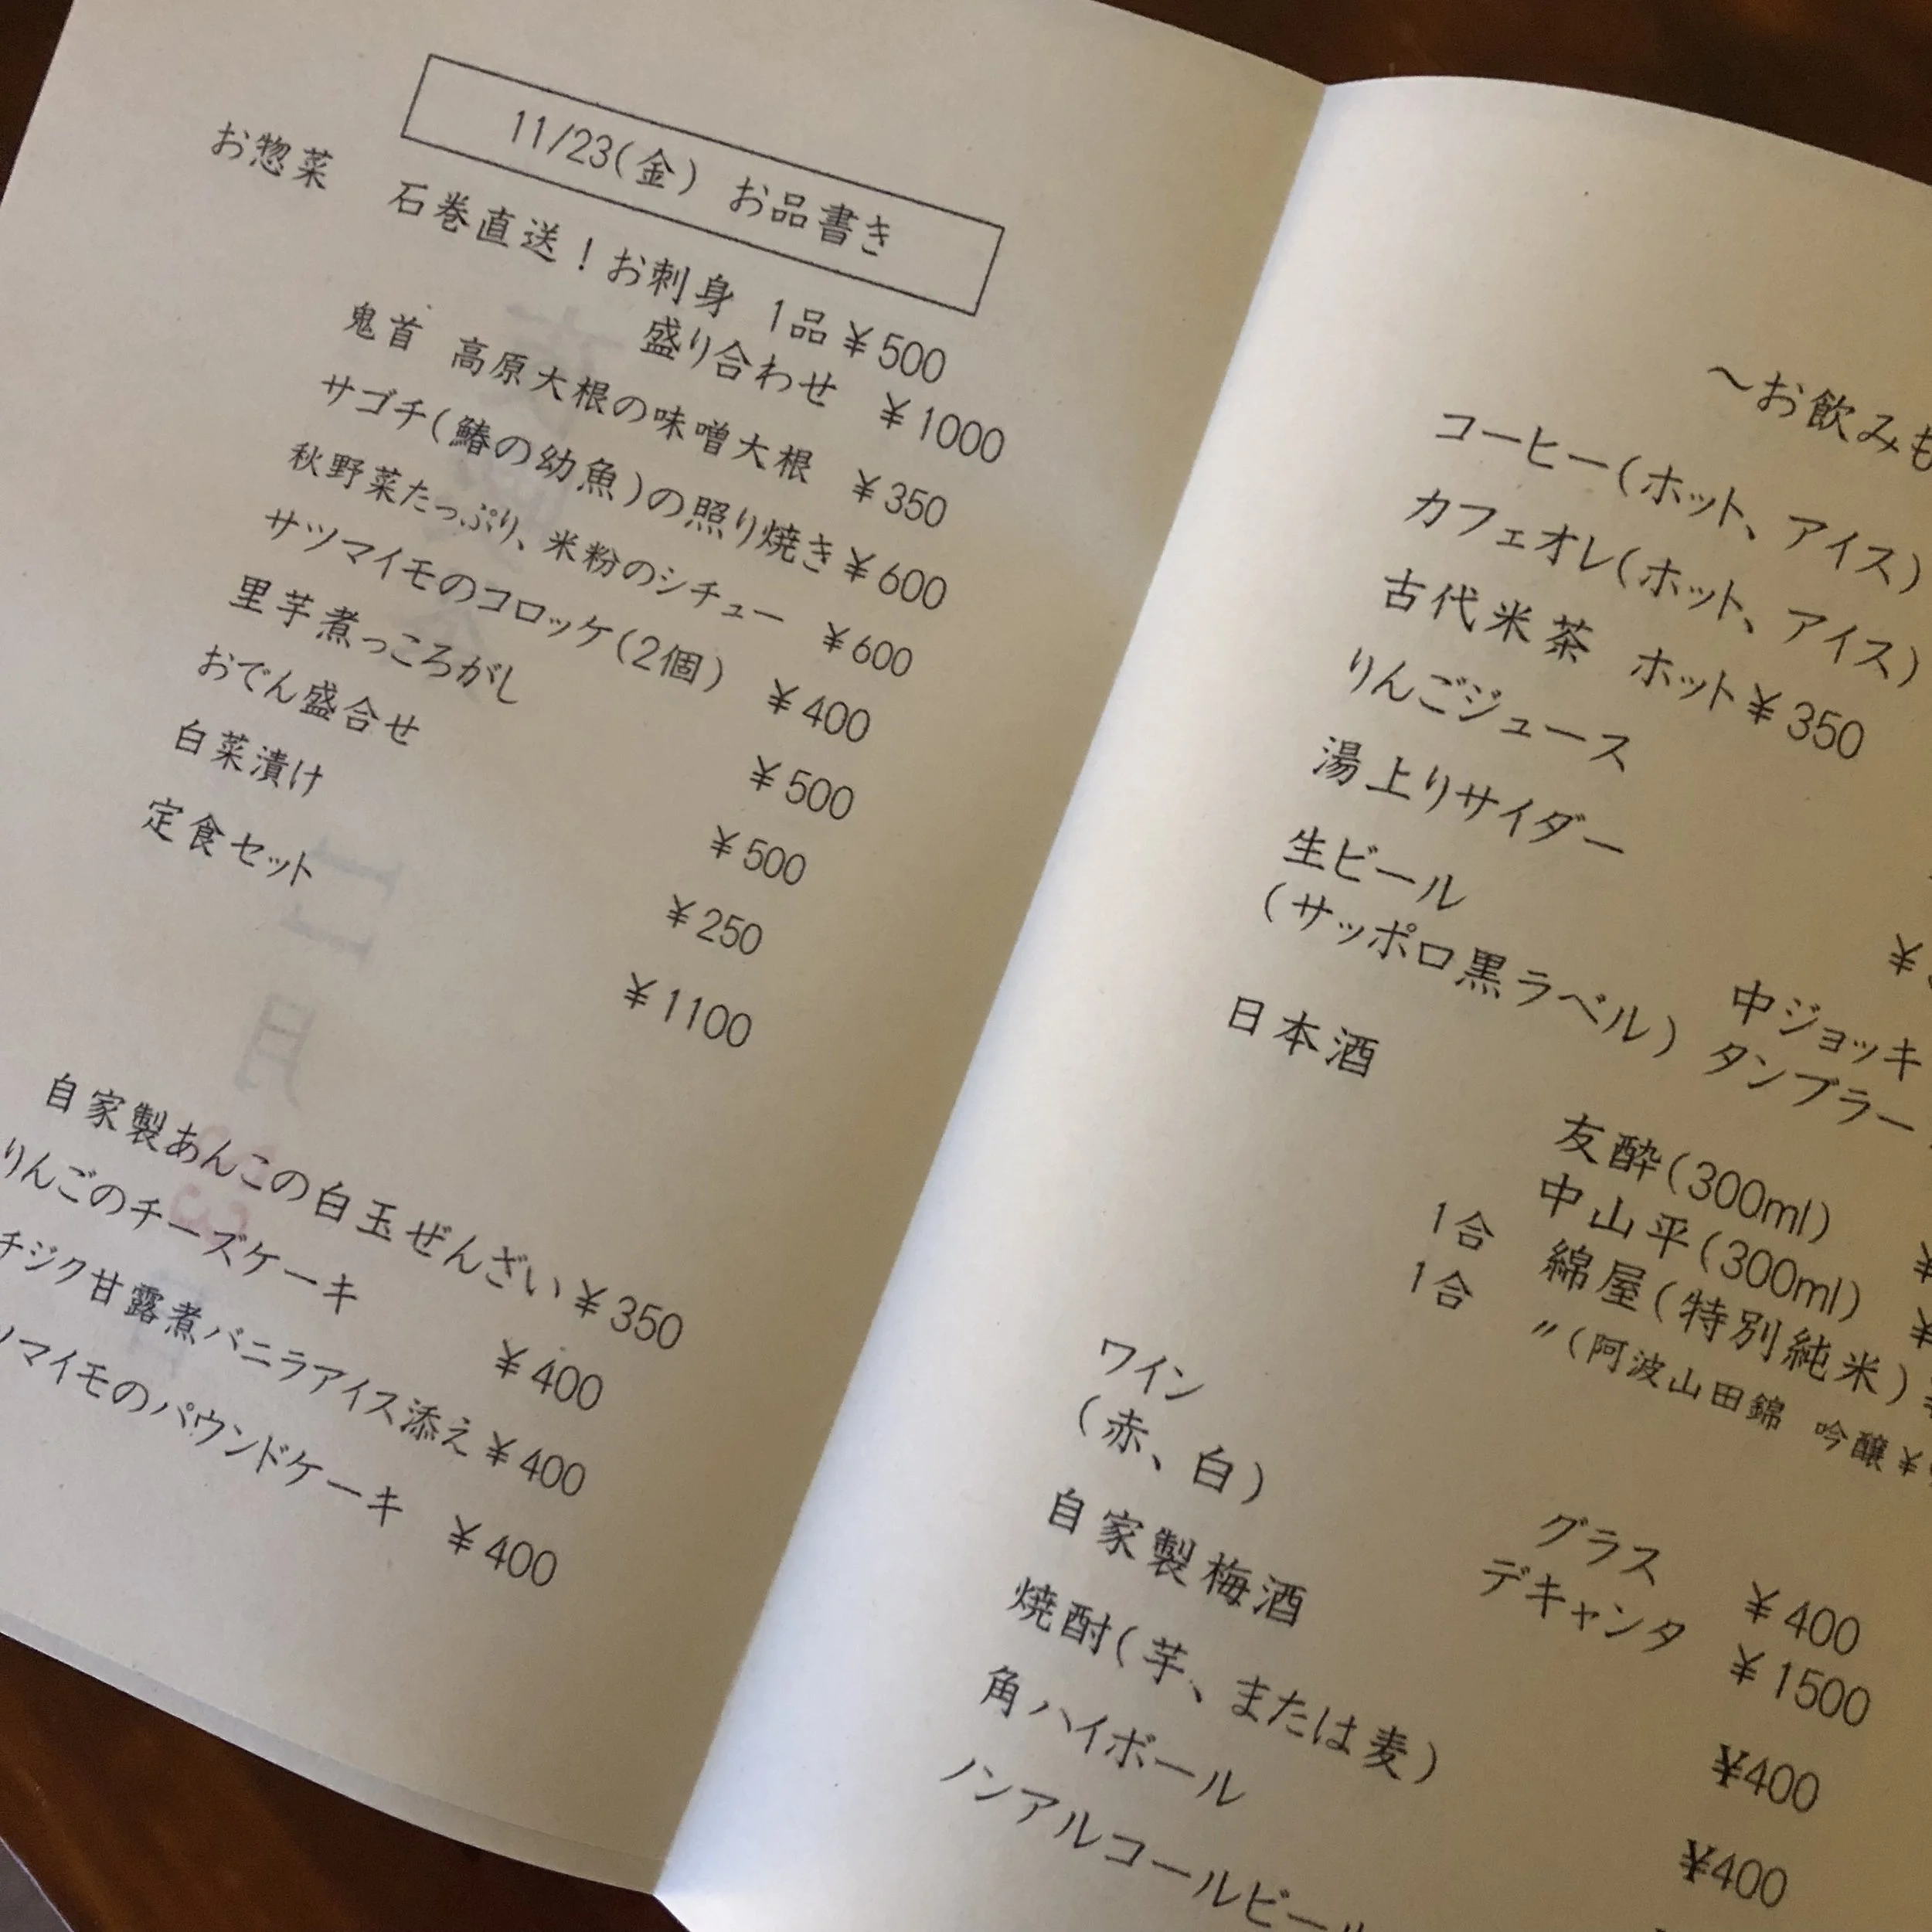 11/23(金) お品書き
お惣菜 石巻直送！お刺身 1品￥500
盛り合わせ ￥1000
鬼首 高原大根の味噌大根 ￥350
サゴチ(鰆の幼魚)の照り焼き￥600
秋野菜たっぷり、米粉のシチュー ￥600
サツマイモのコロッケ(2個) ￥400
里芋煮っころがし ￥500
おでん盛合せ ￥500
白菜漬け ￥250
定食セット ￥1100
自家製あんこの白玉ぜんざい￥350
りんごのチーズケーキ ￥400
チジク甘露煮バニラアイス添え￥400
ツマイモのパウンドケーキ ￥400
～お飲みも
コーヒー(ホット、アイス)
カフェオレ(ホット、アイス)
古代米茶 ホット￥350
りんごジュース
湯上りサイダー
生ビール 中ジョッキ
(サッポロ黒ラベル) タンブラー
日本酒 友酔(300ml)
中山平(300ml)
1合 綿屋(特別純米)
1合 〃(阿波山田錦 吟醸￥
ワイン グラス ￥400
(赤、白) デキャンタ ￥1500
自家製梅酒 ¥400
焼酎(芋、または麦) ¥400
角ハイボール
ノンアルコールビール